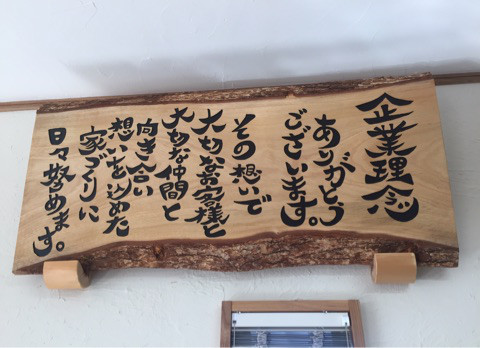 企業理念
ありがとう
ございます。
その想いで
大切なお客様と
大切な仲間と
向き合い
想いを込めた
家づくりに
日々努めます。